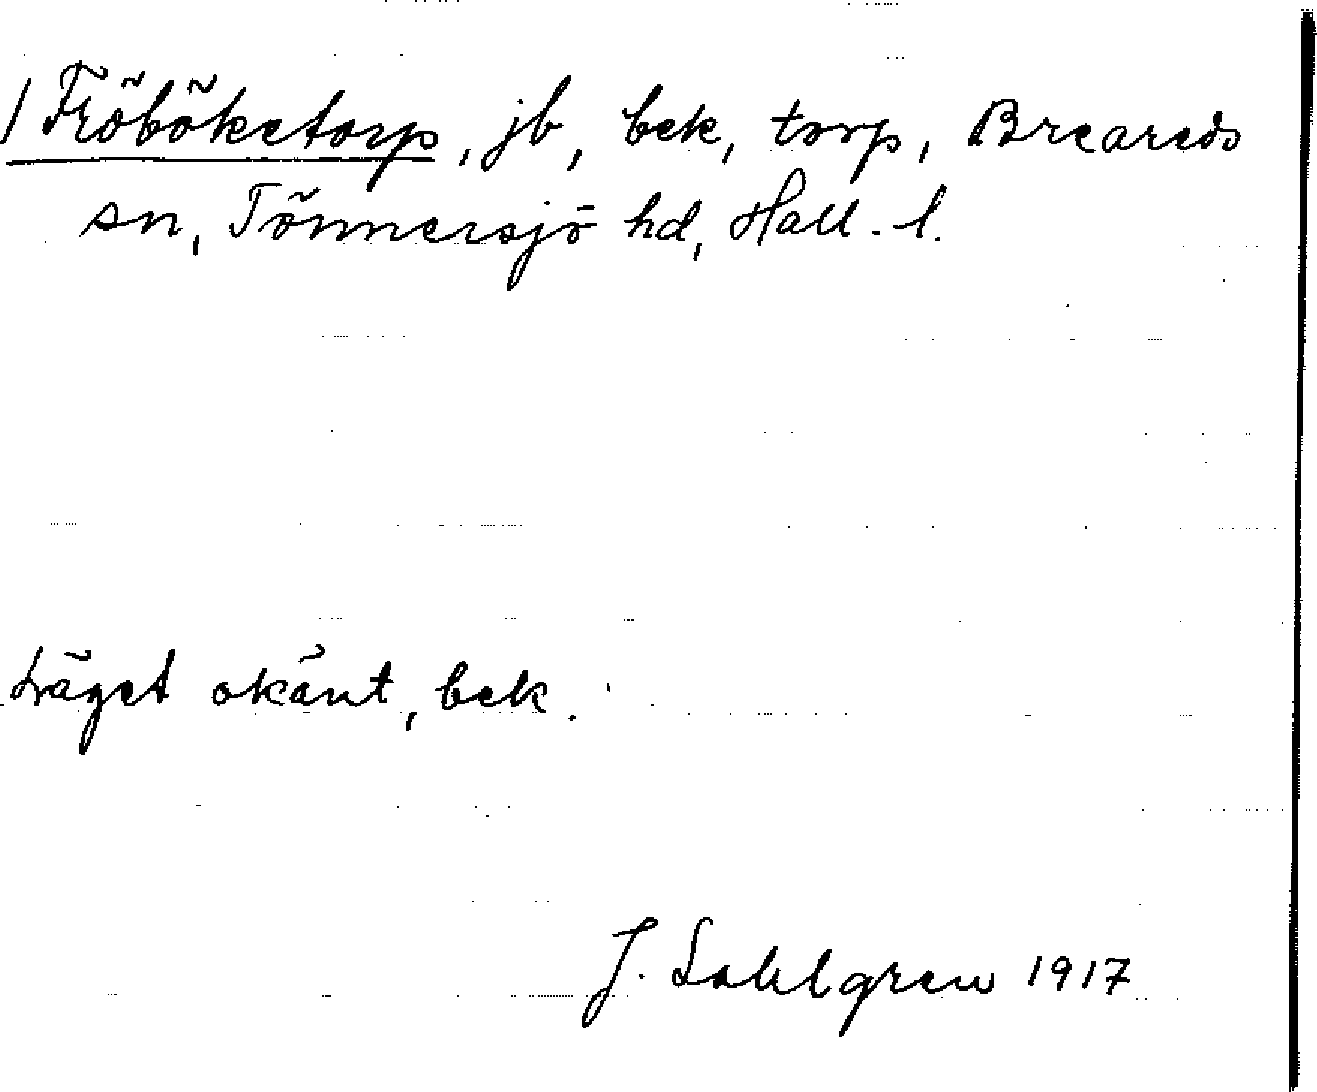 / Fröböketorp, jb, bek, torp, Breareds
sn, Tönnersjö hd, Hall. l.
Läget okänt, bek.
J. Sahlgren 1917